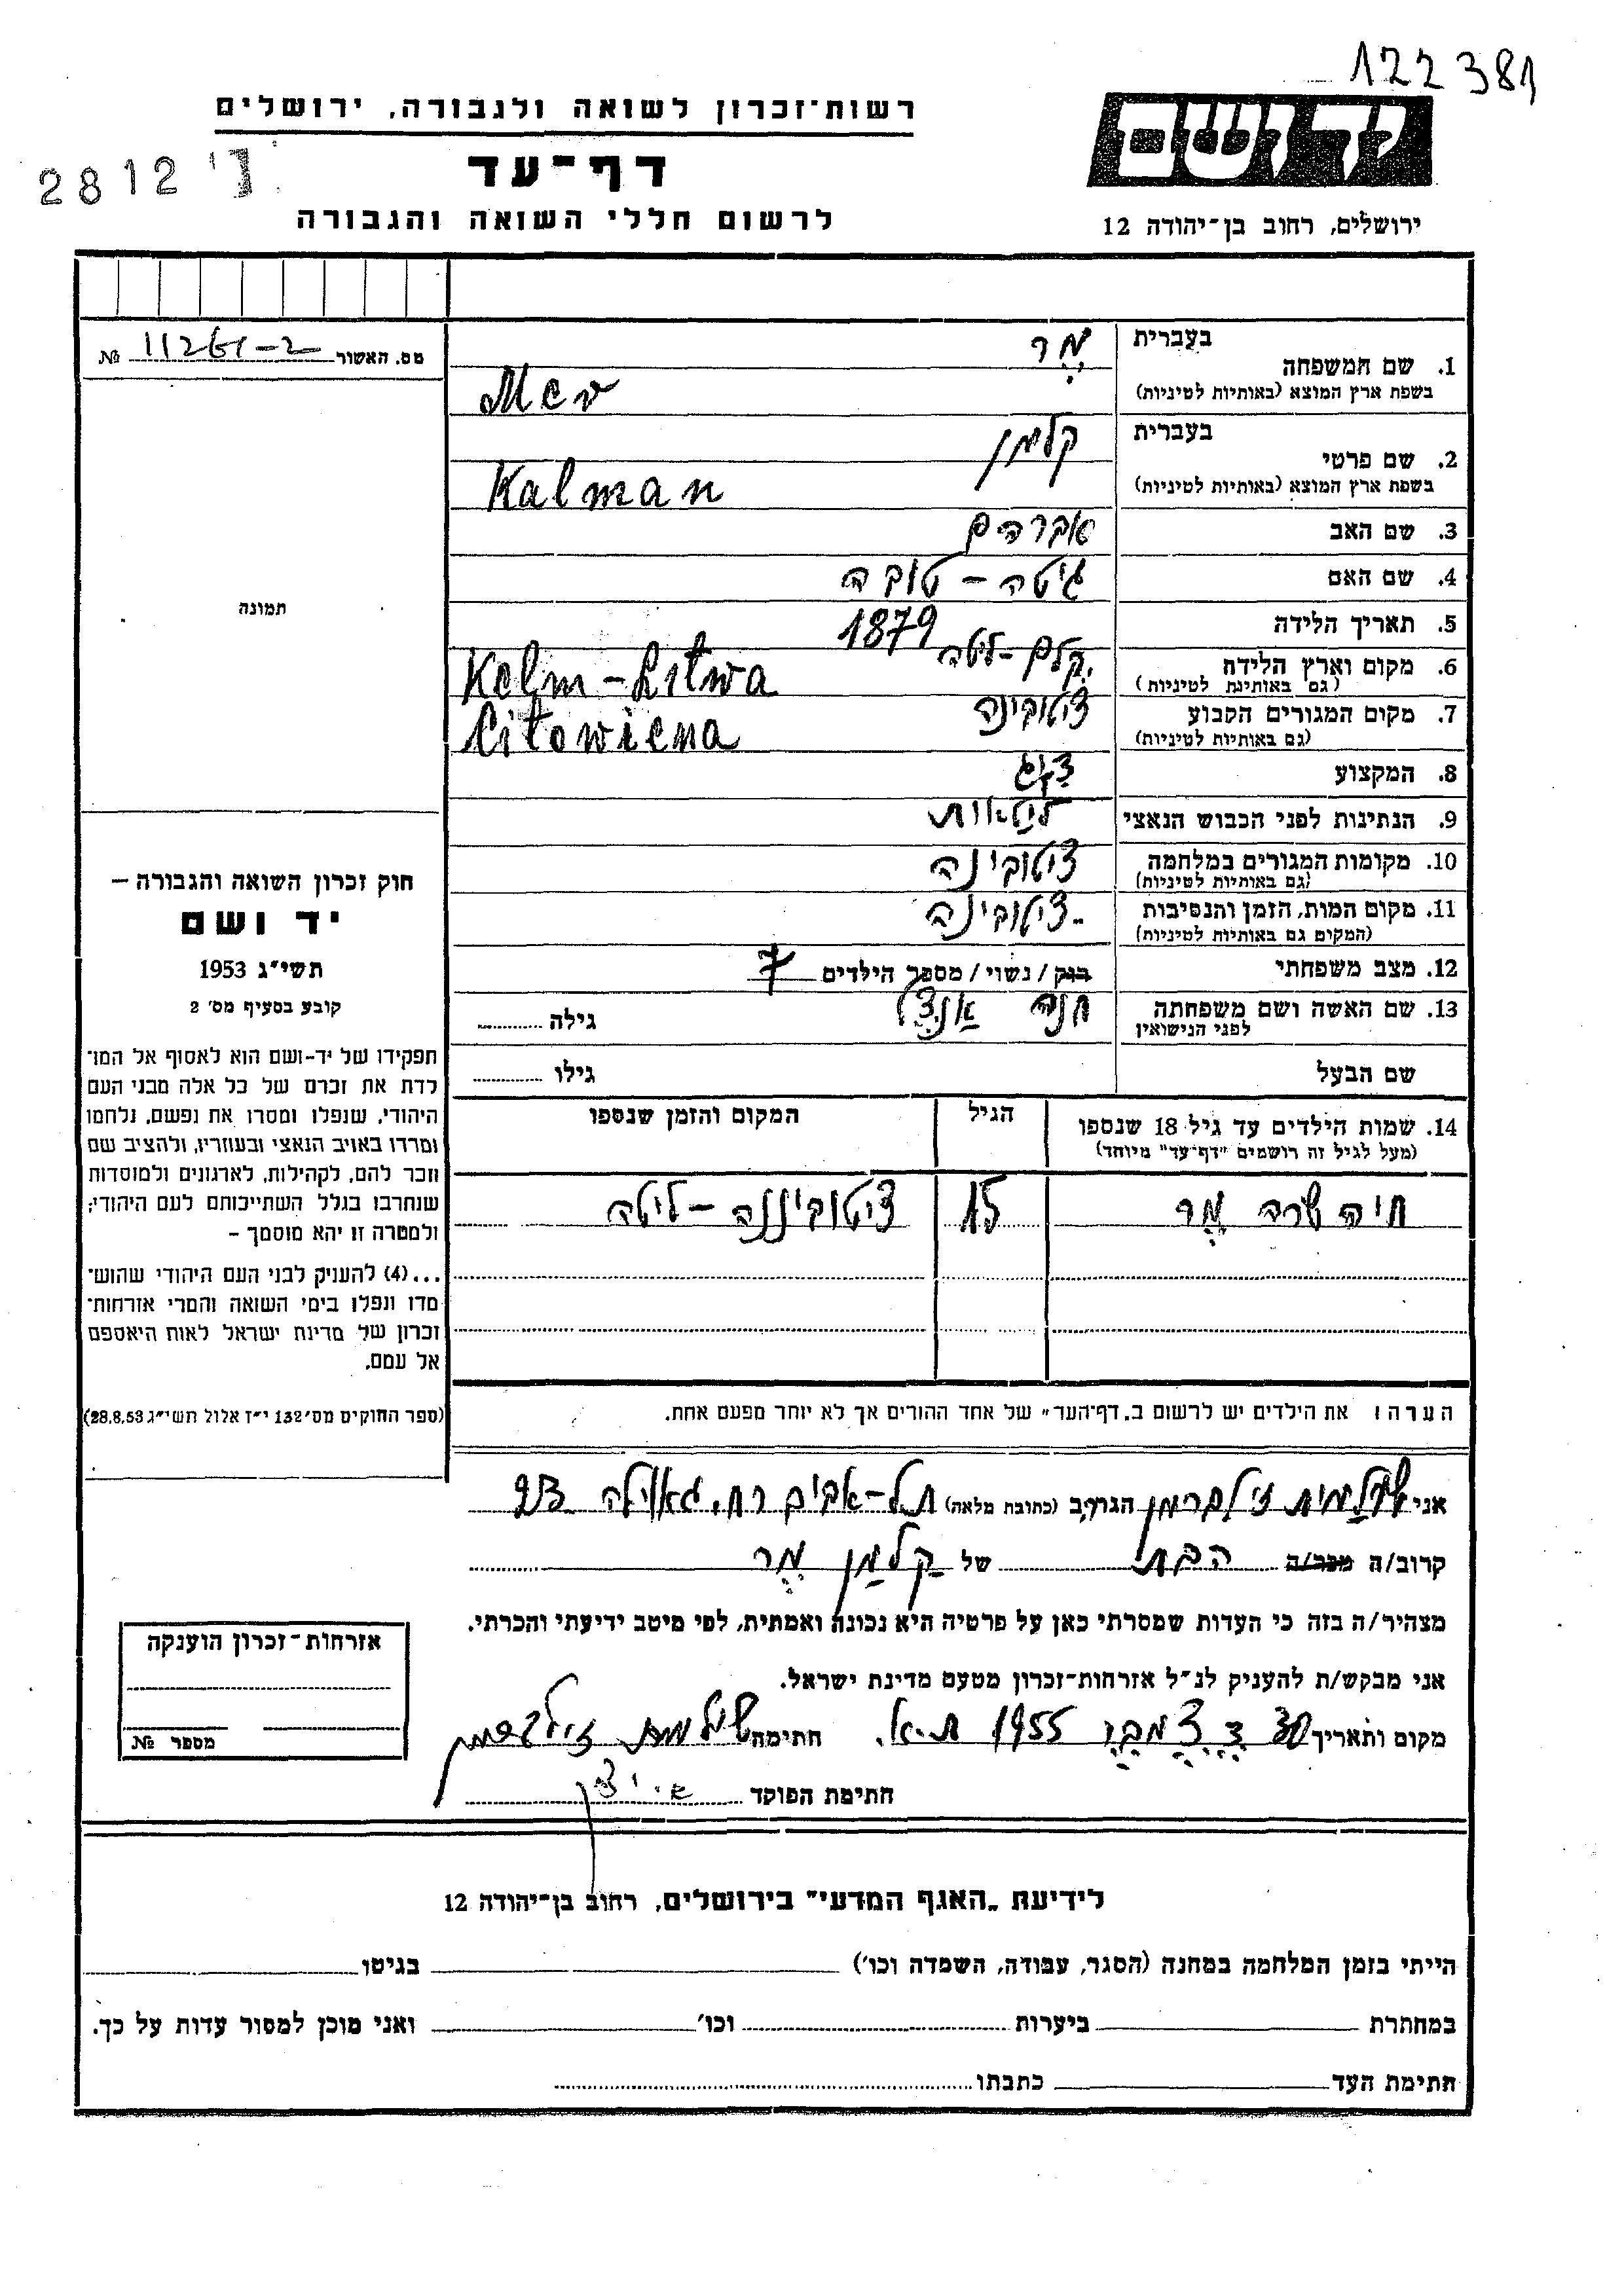 122381
רשות־זכרון לשואה ולגבורה, ירושלים
יד ושם
דף־עד
2812
לרשום חללי השואה והגבורה
ירושלים, רחוב בן־יהודה 12
מס. האשור № 11261-2
1. שם המשפחה
בעברית מר
בשפת ארץ המוצא (באותיות לטיניות) Mer
2. שם פרטי
בעברית קלמן
בשפת ארץ המוצא (באותיות לטיניות) Kalman
3. שם האב אברהם
4. שם האם גיטה - טובה
5. תאריך הלידה 1879
6. מקום וארץ הלידה קלם - ליטה
(גם באותיות לטיניות) Kelm - Litwa
7. מקום המגורים הקבוע ציטובינה
(גם באותיות לטיניות) Citowiena
8. המקצוע
9. הנתינות לפני הכבוש הנאצי ליטאות
10. מקומות המגורים במלחמה ציטובינה
(גם באותיות לטיניות)
11. מקום המות, הזמן והנסיבות ציטובינה
(המקום גם באותיות לטיניות)
12. מצב משפחתי רווק / נשוי / מספר הילדים 7
13. שם האשה ושם משפחתה חנה גילה
לפני הנישואין
שם הבעל גילו
14. שמות הילדים עד גיל 18 שנספו הגיל המקום והזמן שנספו
(מעל לגיל זה רושמים "דף־עד" מיוחד)
חיה שרה מר 15 ציטובינה - ליטה
הערה: את הילדים יש לרשום ב„דף־העד" של אחד ההורים אך לא יותר מפעם אחת.
תמונה
חוק זכרון השואה והגבורה –
יד ושם
תשי"ג 1953
קובע בסעיף מס' 2
תפקידו של יד-ושם הוא לאסוף אל המו־
לדת את זכרם של כל אלה מבני העם
היהודי, שנפלו ומסרו את נפשם, נלחמו
ומרדו באויב הנאצי ובעוזריו, ולהציב שם
וזכר להם, לקהילות, לארגונים ולמוסדות
שנחרבו בגלל השתייכותם לעם היהודי;
ולמטרה זו יהא מוסמך –
...(4) להעניק לבני העם היהודי שהוש־
מדו ונפלו בימי השואה והמרי אזרחות־
זכרון של מדינת ישראל לאות היאספם
אל עמם.
(ספר החוקים מס' 132 י"ז אלול תשי"ג 28.8.53)
אני שולמית זילברמן הגר/ב (כתובת מלאה) תל-אביב רח. גאולה 23
קרוב/ה מכר/ה הבת של קלמן מר
מצהיר/ה בזה כי העדות שמסרתי כאן על פרטיה היא נכונה ואמתית, לפי מיטב ידיעתי והכרתי.
אני מבקש/ת להעניק לנ"ל אזרחות-זכרון מטעם מדינת ישראל.
מקום ותאריך 30 דצמבר 1955 ת.א. חתימה שולמית זילברמן
חתימת הפוקד
אזרחות-זכרון הוענקה
מספר №
לידיעת „האגף המדעי" בירושלים, רחוב בן-יהודה 12
הייתי בזמן המלחמה במחנה (הסגר, עבודה, השמדה וכו') בגיטו
במחתרת ביערות וכו' ואני מוכן למסור עדות על כך.
חתימת העד כתבתו